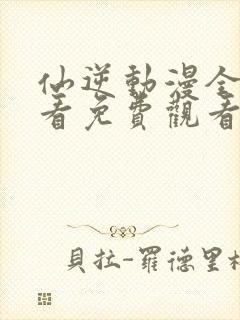 仙逆動漫全
看免費觀看
貝拉-羅德里